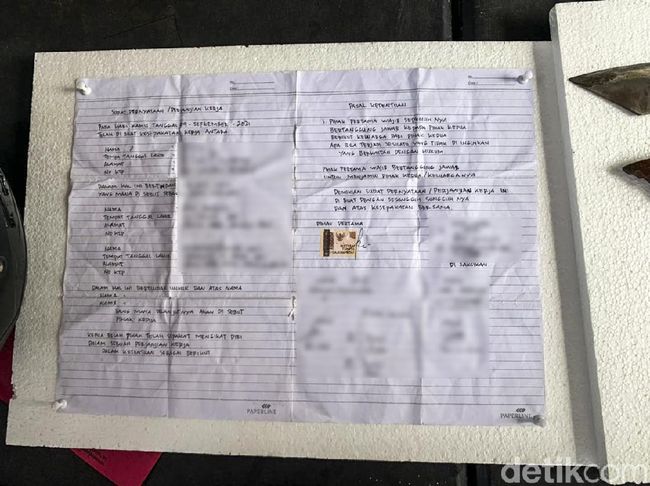 SURAT PERNYATAAN / PERJANJIAN KERJA
PADA HARI KAMIS TANGGAL 09 - SEPTEMBER - 2021
TELAH DI BUAT KESEPAKATAN KERJA ANTARA
NAMA
TEMPAT TANGGAL LAHIR
ALAMAT
NO KTP
DALAM HAL INI BERTINDAK
YANG MANA DI SEBUT SEBAGAI
NAMA
TEMPAT TANGGAL LAHIR
ALAMAT
NO KTP
NAMA
TEMPAT TANGGAL LAHIR
ALAMAT
NO KTP
DALAM HAL INI BERTINDAK UNTUK DAN ATAS NAMA
NAMA :
NAMA :
YANG MANA SELANJUTNYA AKAN DI SEBUT
PIHAK KEDUA
KEDUA BELAH PIHAK TELAH SEPAKAT MENGIKAT DIRI
DALAM SEBUAH PERJANJIAN KERJA
DALAM KETENTUAN SEBAGAI BERIKUT
PAPERLINE
PASAL KETENTUAN
1. PIHAK PERTAMA WAJIB SEPENUH NYA
BERTANGGUNG JAWAB KEPADA PIHAK KEDUA
BERIKUT KELUARGA DARI PIHAK KEDUA
APA BILA TERJADI SESUATU YANG TIDAK DI INGINKAN
YANG BERKAITAN DENGAN HUKUM.
PIHAK PERTAMA WAJIB BERTANGGUNG JAWAB
UNTUK MENJAMIN PIHAK KEDUA / KELUARGANYA
DEMIKIAN SURAT PERNYATAAN / PERJANJIAN KERJA INI
DI BUAT DENGAN SESUNGGUH SUNGGUH NYA
DAN ATAS KESEPAKATAN BERSAMA.
PIHAK PERTAMA
DI SAKSIKAN
PAPERLINE
detikcom